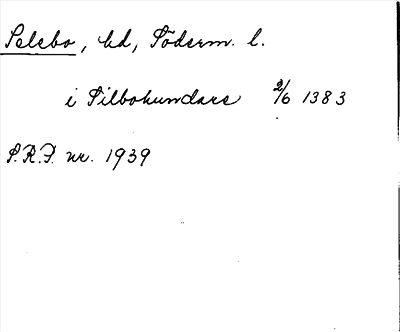 Selebo, hd, Söderm. l.
i Silbohundare 2/6 1383
S.R.P. nr. 1939